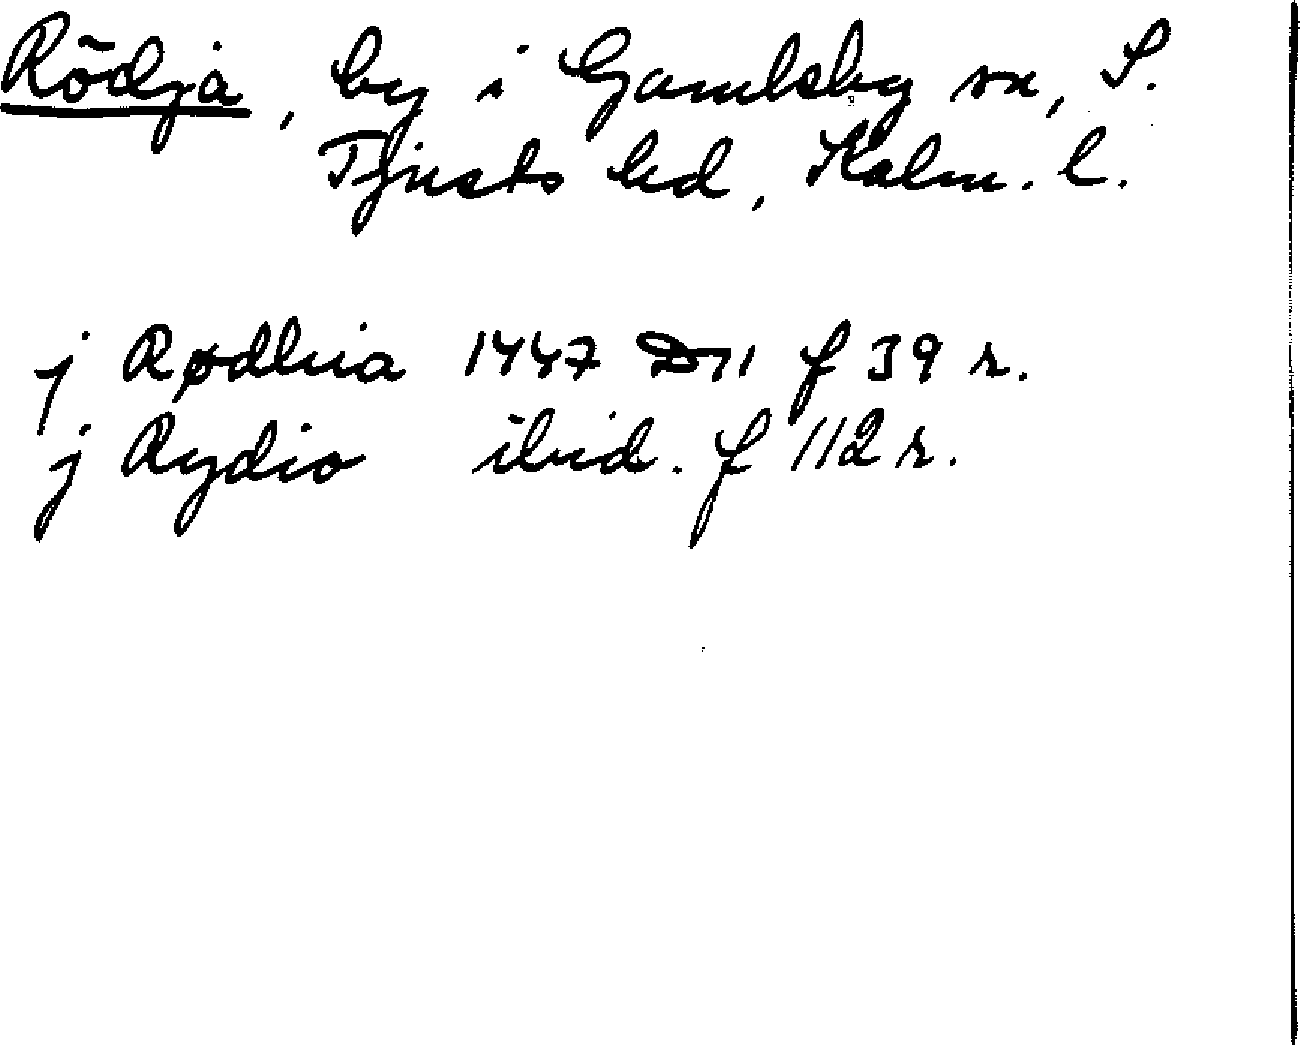 Rödja, by i Gamleby sn, S.
Tjusts hd, Kalm. l.
j Rødhia 1447 D 11 f 39 r.
j Rydio ibid. f 112 r.